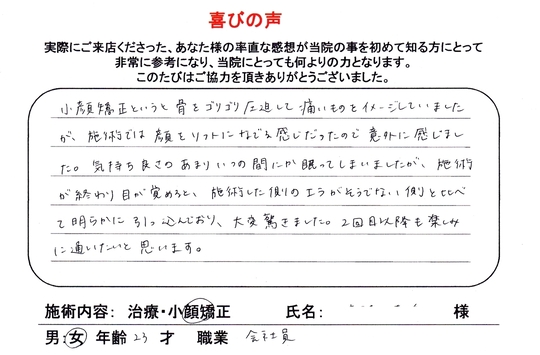 喜びの声
実際にご来店くださった、あなた様の率直な感想が当院の事を初めて知る方にとって
非常に参考になり、当院にとっても何よりの力となります。
このたびはご協力を頂きありがとうございました。
小顔矯正というと骨をゴリゴリ圧迫して痛いものをイメージしていました
が、施術では顔をソフトになでる感じだったので意外に感じまし
た。気持ち良さのあまりいつの間にか眠ってしまいましたが、施術
が終わり目が覚めると、施術した側のエラがそうでない側と比べ
て明らかに引っ込んでおり、大変驚きました。2回目以降も楽しみ
に通いたいと思います。
施術内容: 治療・小顔矯正 氏名: 様
男:女 年齢 23 才 職業 会社員